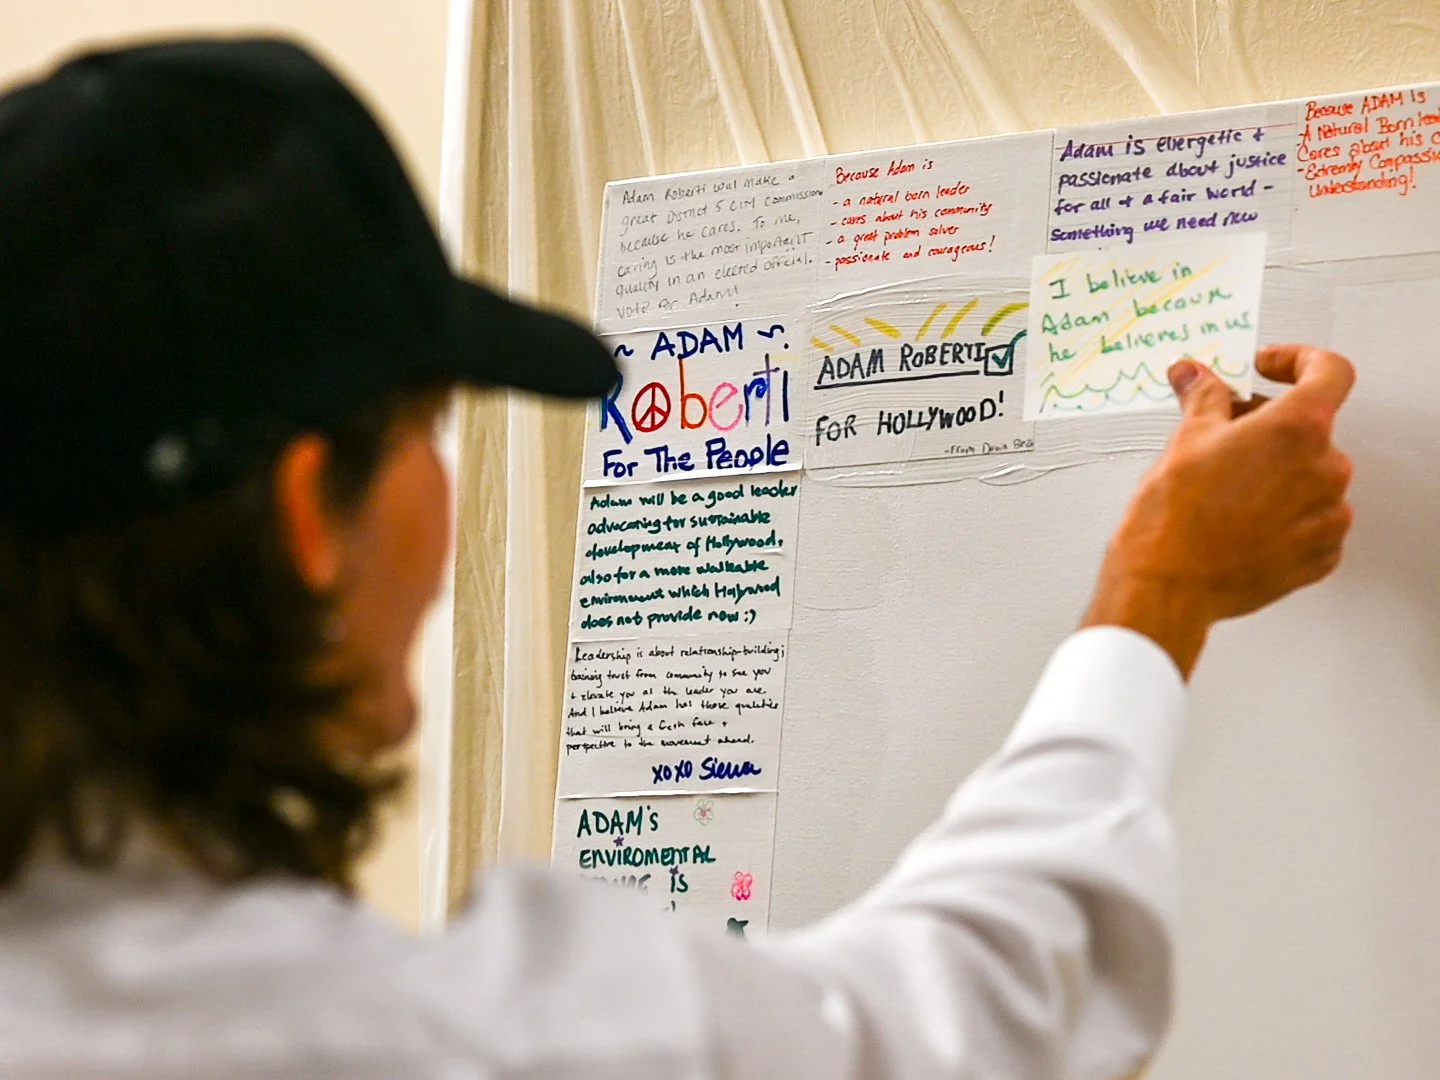 Adam Roberti will make a
great District 5 City Commissioner
because he cares. To me,
caring is the most important
quality in an elected official.
Vote for Adam!
Because Adam is
- a natural born leader
- cares about his community
- a great problem solver
- passionate and courageous!
Adam is energetic +
passionate about justice
for all + a fair world -
something we need now
Because ADAM is
- A Natural Born
Cares about his
- Extremely Compassi
Understanding!
~ ADAM ~
Roberti
For The People
ADAM ROBERTI
FOR HOLLYWOOD!
- From
I believe in
Adam because
he believes in us
Adam will be a good leader
advocating for sustainable
development of Hollywood,
also for a more walkable
environment which Hollywood
does not provide now :)
Leadership is about relationship-building;
gaining trust from community to see you
+ elevate you as the leader you are.
And I believe Adam has those qualities
that will bring a fresh face +
perspective to the movement ahead.
XOXO Sierra
ADAM's
ENVIROMENTAL
IS